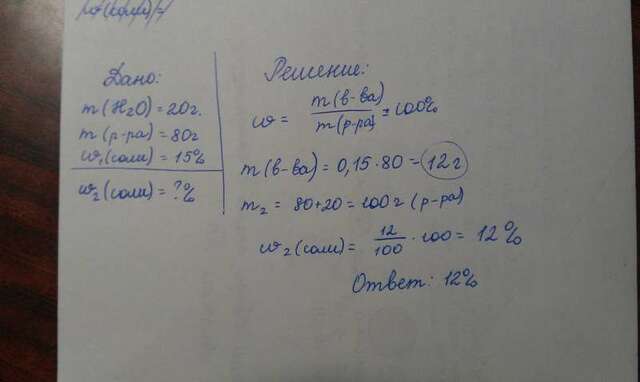 Дано:
m(H₂O) = 20г.
m(р-ра) = 80г
ω₁(соли) = 15%
ω₂(соли) = ?%
Решение:
ω = m(в-ва) / m(р-ра) * 100%
m(в-ва) = 0,15 · 80 = 12г
m₂ = 80+20 = 100г (р-ра)
ω₂(соли) = 12/100 · 100 = 12%
Ответ: 12%